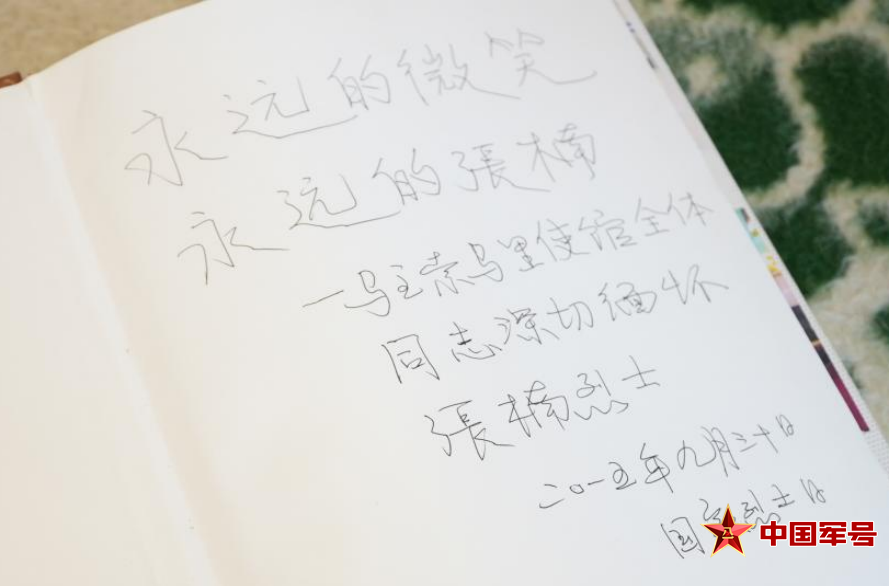 永远的微笑
永远的張楠
一马主索马里使馆全体
同志深切缅怀
張楠烈士
二〇一五年九月三十日
国家烈士日
中国军号